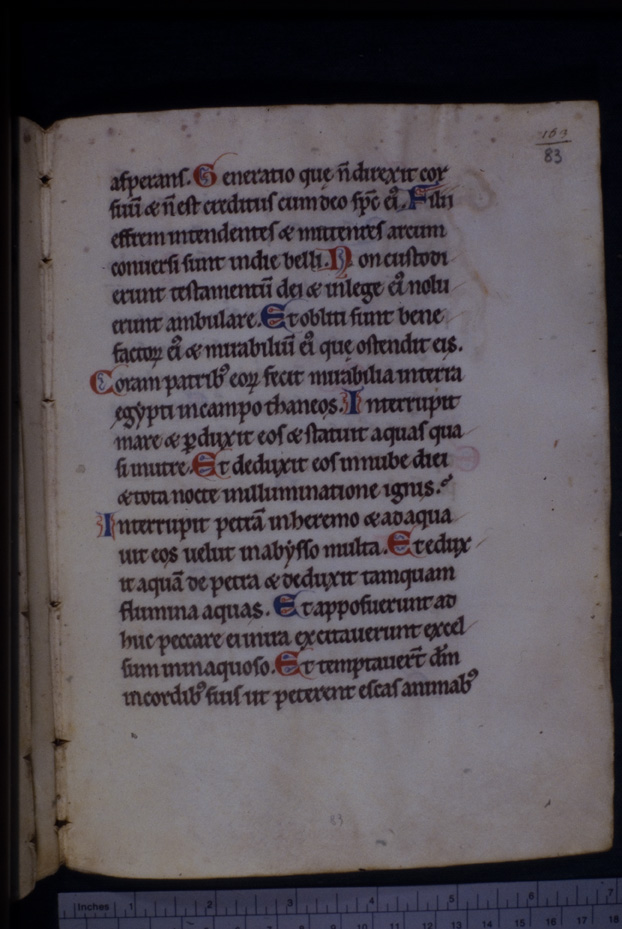 163
83
asperans. Generatio que n̄ direxit cor
suū & n̄ est creditus cum deo sp̄c eiꝰ. Filii
effrem intendentes & mittentes arcum
conuersi sunt in die belli. Non custodi
erunt testamentū dei & in lege eiꝰ nolu
erunt ambulare. Et obliti sunt bene
factoꝝ eiꝰ & mirabiliū eiꝰ que ostendit eis.
Coram patribꝰ eoꝝ fecit mirabilia in terra
egypti in campo thaneos. Interrupit
mare & ꝑduxit eos & statuit aquas qua
si in utre. Et deduxit eos in nube diei
& tota nocte in illuminatione ignis.
Interrupit petrā in heremo & adaqua
uit eos uelut in abysso multa. Et edux
it aquā de petra & deduxit tamquam
flumina aquas. Et apposuerunt ad
huc peccare ei in ira excitauerunt excel
sum in inaquoso. Et temptauert̄ dm̄
in cordibꝰ suis ut peterent escas animabꝰ
83
Inches 1 2 3 4 5 6 7
1 2 10 11 12 13 14 15 16 17 18